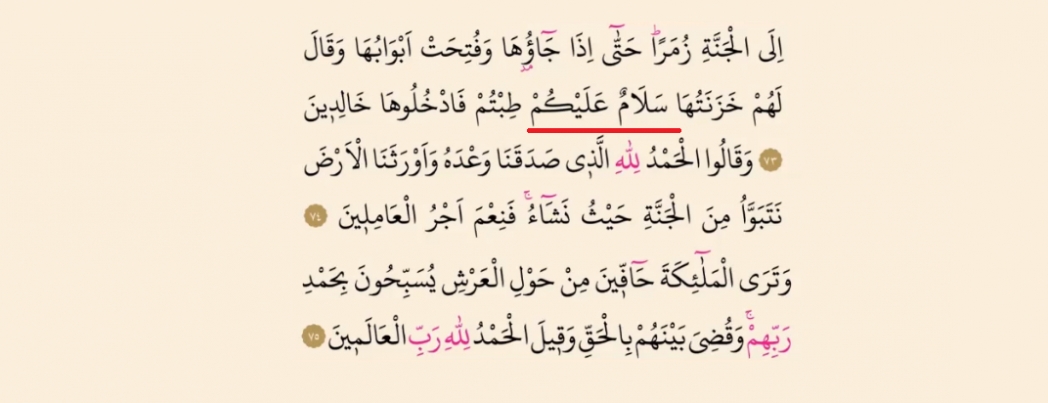 اِلَى الْجَنَّةِ زُمَرًاۜ حَتّٰٓى اِذَا جَٓاؤُ۫هَا وَفُتِحَتْ اَبْوَابُهَا وَقَالَ
لَهُمْ خَزَنَتُهَا سَلَامٌ عَلَيْكُمْ طِبْتُمْ فَادْخُلُوهَا خَالِد۪ينَ
﴿٧٣﴾ وَقَالُوا الْحَمْدُ لِلّٰهِ الَّذ۪ي صَدَقَنَا وَعْدَهُ وَاَوْرَثَنَا الْاَرْضَ
نَتَبَوَّاُ مِنَ الْجَنَّةِ حَيْثُ نَشَٓاءُۚ فَنِعْمَ اَجْرُ الْعَامِل۪ينَ ﴿٧٤﴾
وَتَرَى الْمَلٰٓئِكَةَ حَٓافّ۪ينَ مِنْ حَوْلِ الْعَرْشِ يُسَبِّحُونَ بِحَمْدِ
رَبِّهِمْۚ وَقُضِيَ بَيْنَهُمْ بِالْحَقِّ وَق۪يلَ الْحَمْدُ لِلّٰهِ رَبِّ الْعَالَم۪ينَ ﴿٧٥﴾